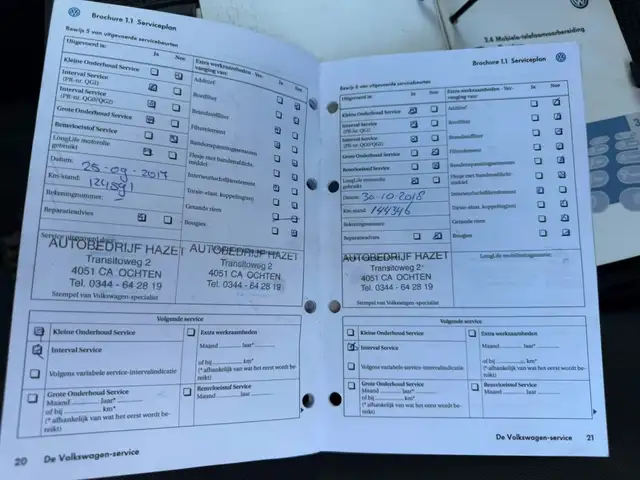 Brochure 1.1 Serviceplan
Bewijs 5 van uitgevoerde servicebeurten
Uitgevoerd is:
Ja Nee
Extra werkzaamheden - Ver-
vanging van:
Ja Nee
Kleine Onderhoud Service
Interval Service
(PR-nr. QG1)
Interval Service
(PR-nr. QG0/QG2)
Grote Onderhoud Service
Remvloeistof Service
LongLife motorolie
gebruikt
Datum: 25-09-2017
Km-stand: 124591
Rekeningnummer:
Reparatieadvies
Additief
Roetfilter
Brandstoffilter
Filterelement
Bandenspanningssensoren
Flesje met bandendicht-
middel
Interieurluchtfilterelement
Torsie-elast. koppeling(en)
Getande riem
Bougies
AUTOBEDRIJF HAZET
Transitoweg 2
4051 CA OCHTEN
Tel. 0344 - 64 28 19
AUTOBEDRIJF HAZET
Transitoweg 2
4051 CA OCHTEN
Tel. 0344 - 64 28 19
Stempel van Volkswagen-specialist
Volgende service
Kleine Onderhoud Service
Interval Service
Volgens variabele service-intervalindicatie
Grote Onderhoud Service
Maand ......... jaar.........
of bij ......... km*
(* afhankelijk van wat het eerst wordt be-
reikt)
Extra werkzaamheden
Maand ......... jaar*
of bij ......... km*
(* afhankelijk van wat het eerst wordt be-
reikt)
Remvloeistof Service
Maand ......... jaar.........
20 De Volkswagen-service
Brochure 1.1 Serviceplan
Bewijs 6 van uitgevoerde servicebeurten
Uitgevoerd is:
Ja Nee
Extra werkzaamheden - Ver-
vanging van:
Ja Nee
Kleine Onderhoud Service
Interval Service
(PR-nr. QG1)
Interval Service
(PR-nr. QG0/QG2)
Grote Onderhoud Service
Remvloeistof Service
LongLife motorolie
gebruikt
Datum: 30-10-2018
Km-stand: 144346
Rekeningnummer:
Reparatieadvies
Additief
Roetfilter
Brandstoffilter
Filterelement
Bandenspanningssensoren
Flesje met bandendicht-
middel
Interieurluchtfilterelement
Torsie-elast. koppeling(en)
Getande riem
Bougies
AUTOBEDRIJF HAZET
Transitoweg 2
4051 CA OCHTEN
Tel. 0344 - 64 28 19
Stempel van Volkswagen-specialist
LongLife mobiliteitsgarantie
Volgende service
Kleine Onderhoud Service
Interval Service
Volgens variabele service-intervalindicatie
Grote Onderhoud Service
Maand ......... jaar.........
of bij ......... km*
(* afhankelijk van wat het eerst wordt be-
reikt)
Extra werkzaamheden
Maand ......... jaar*
of bij ......... km*
(* afhankelijk van wat het eerst wordt be-
reikt)
Remvloeistof Service
Maand ......... jaar.........
De Volkswagen-service 21
3.6 Mobiele-telefoonvoorbereiding